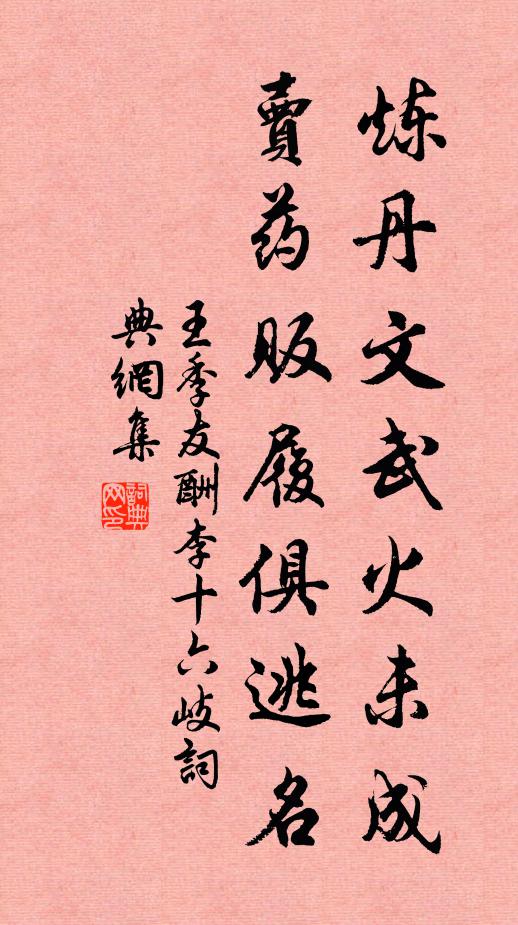 炼丹文武火未成
賣药販履俱逃名
王季友酬李十六岐詞
典網集
詞典网印